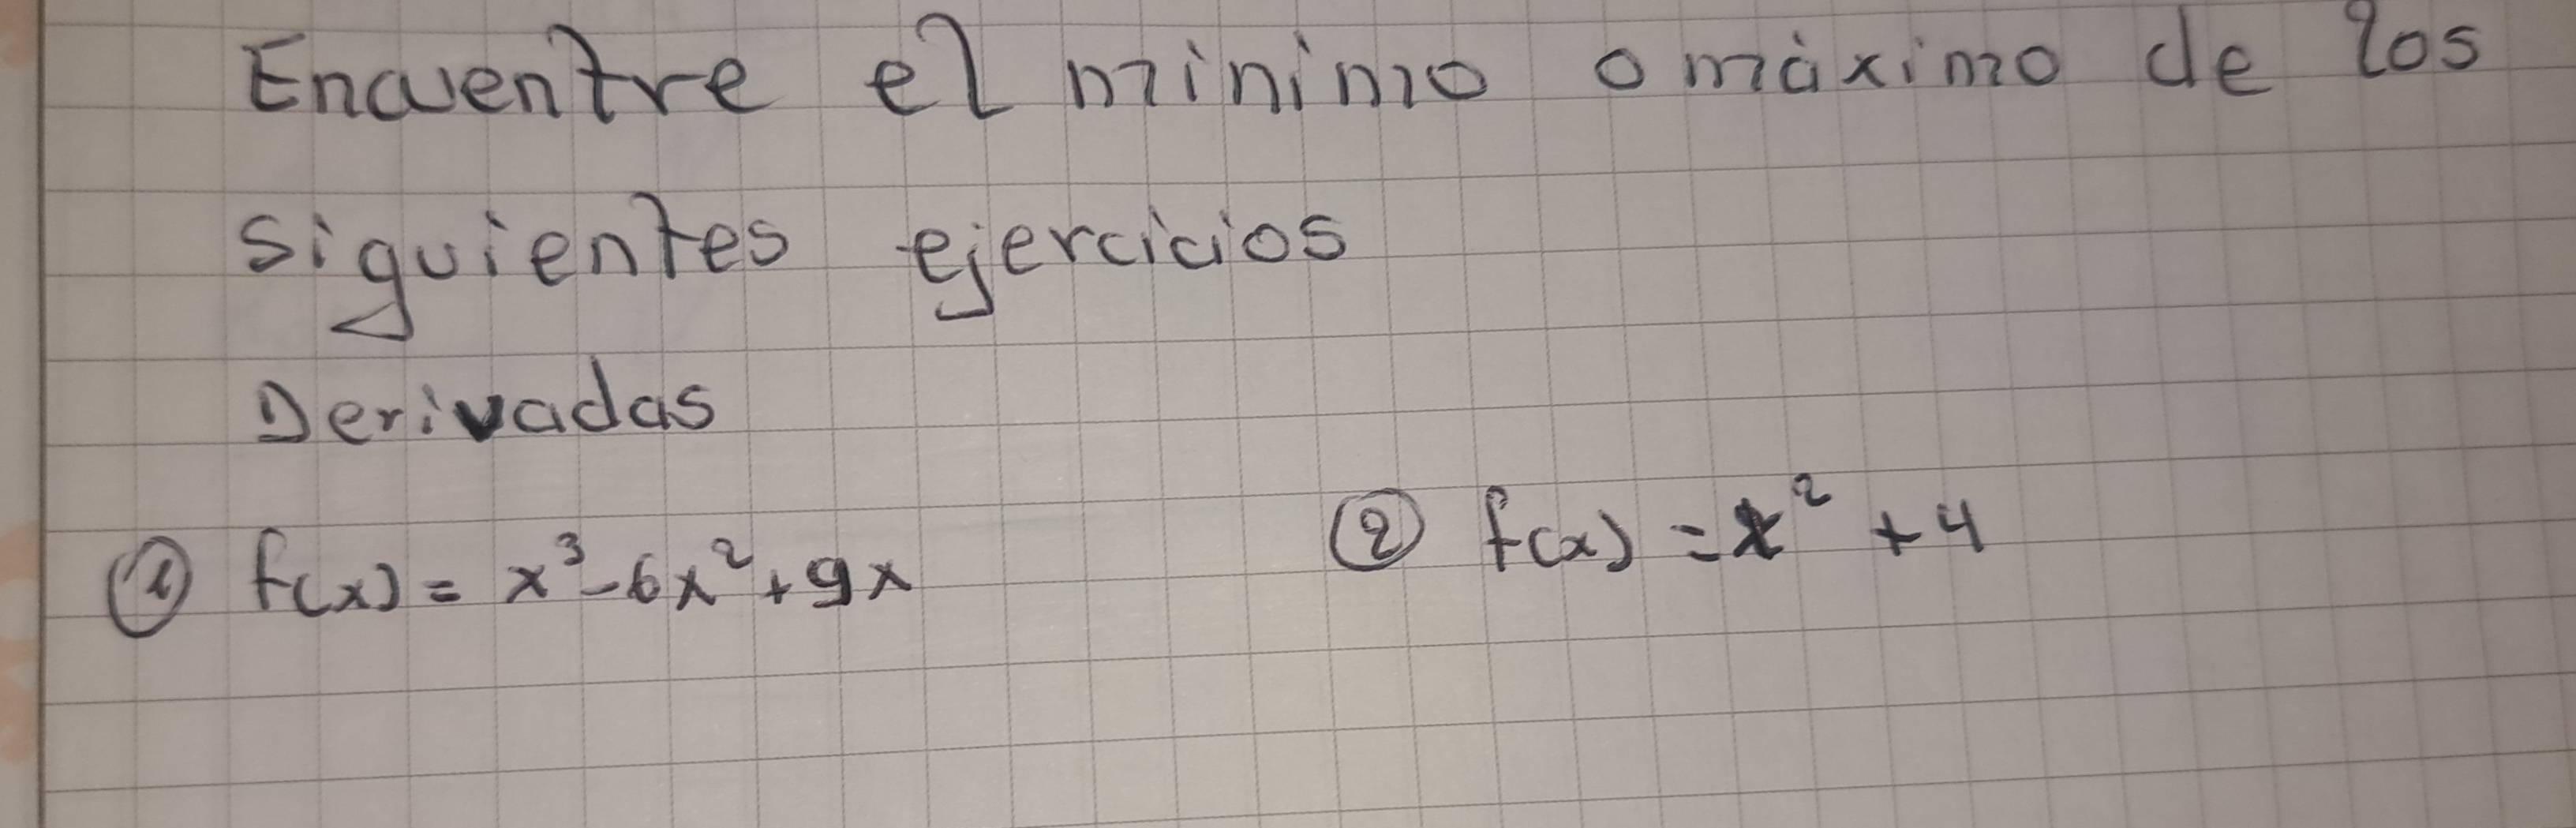 Encuentre el minimo o máximo de los
siguientes ejercicios
Derivadas
① f(x) = x³-6x²+9x
② f(x) = x² +4